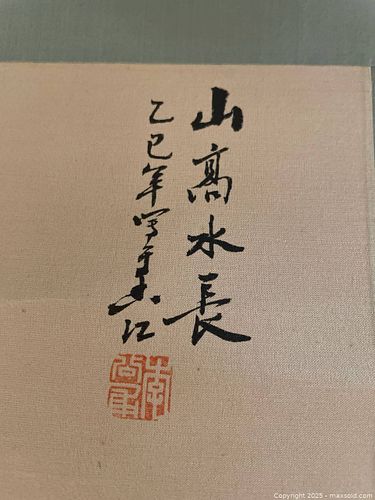 山高水長
乙巳年写于江
Copyright 2025 - maxsold.com